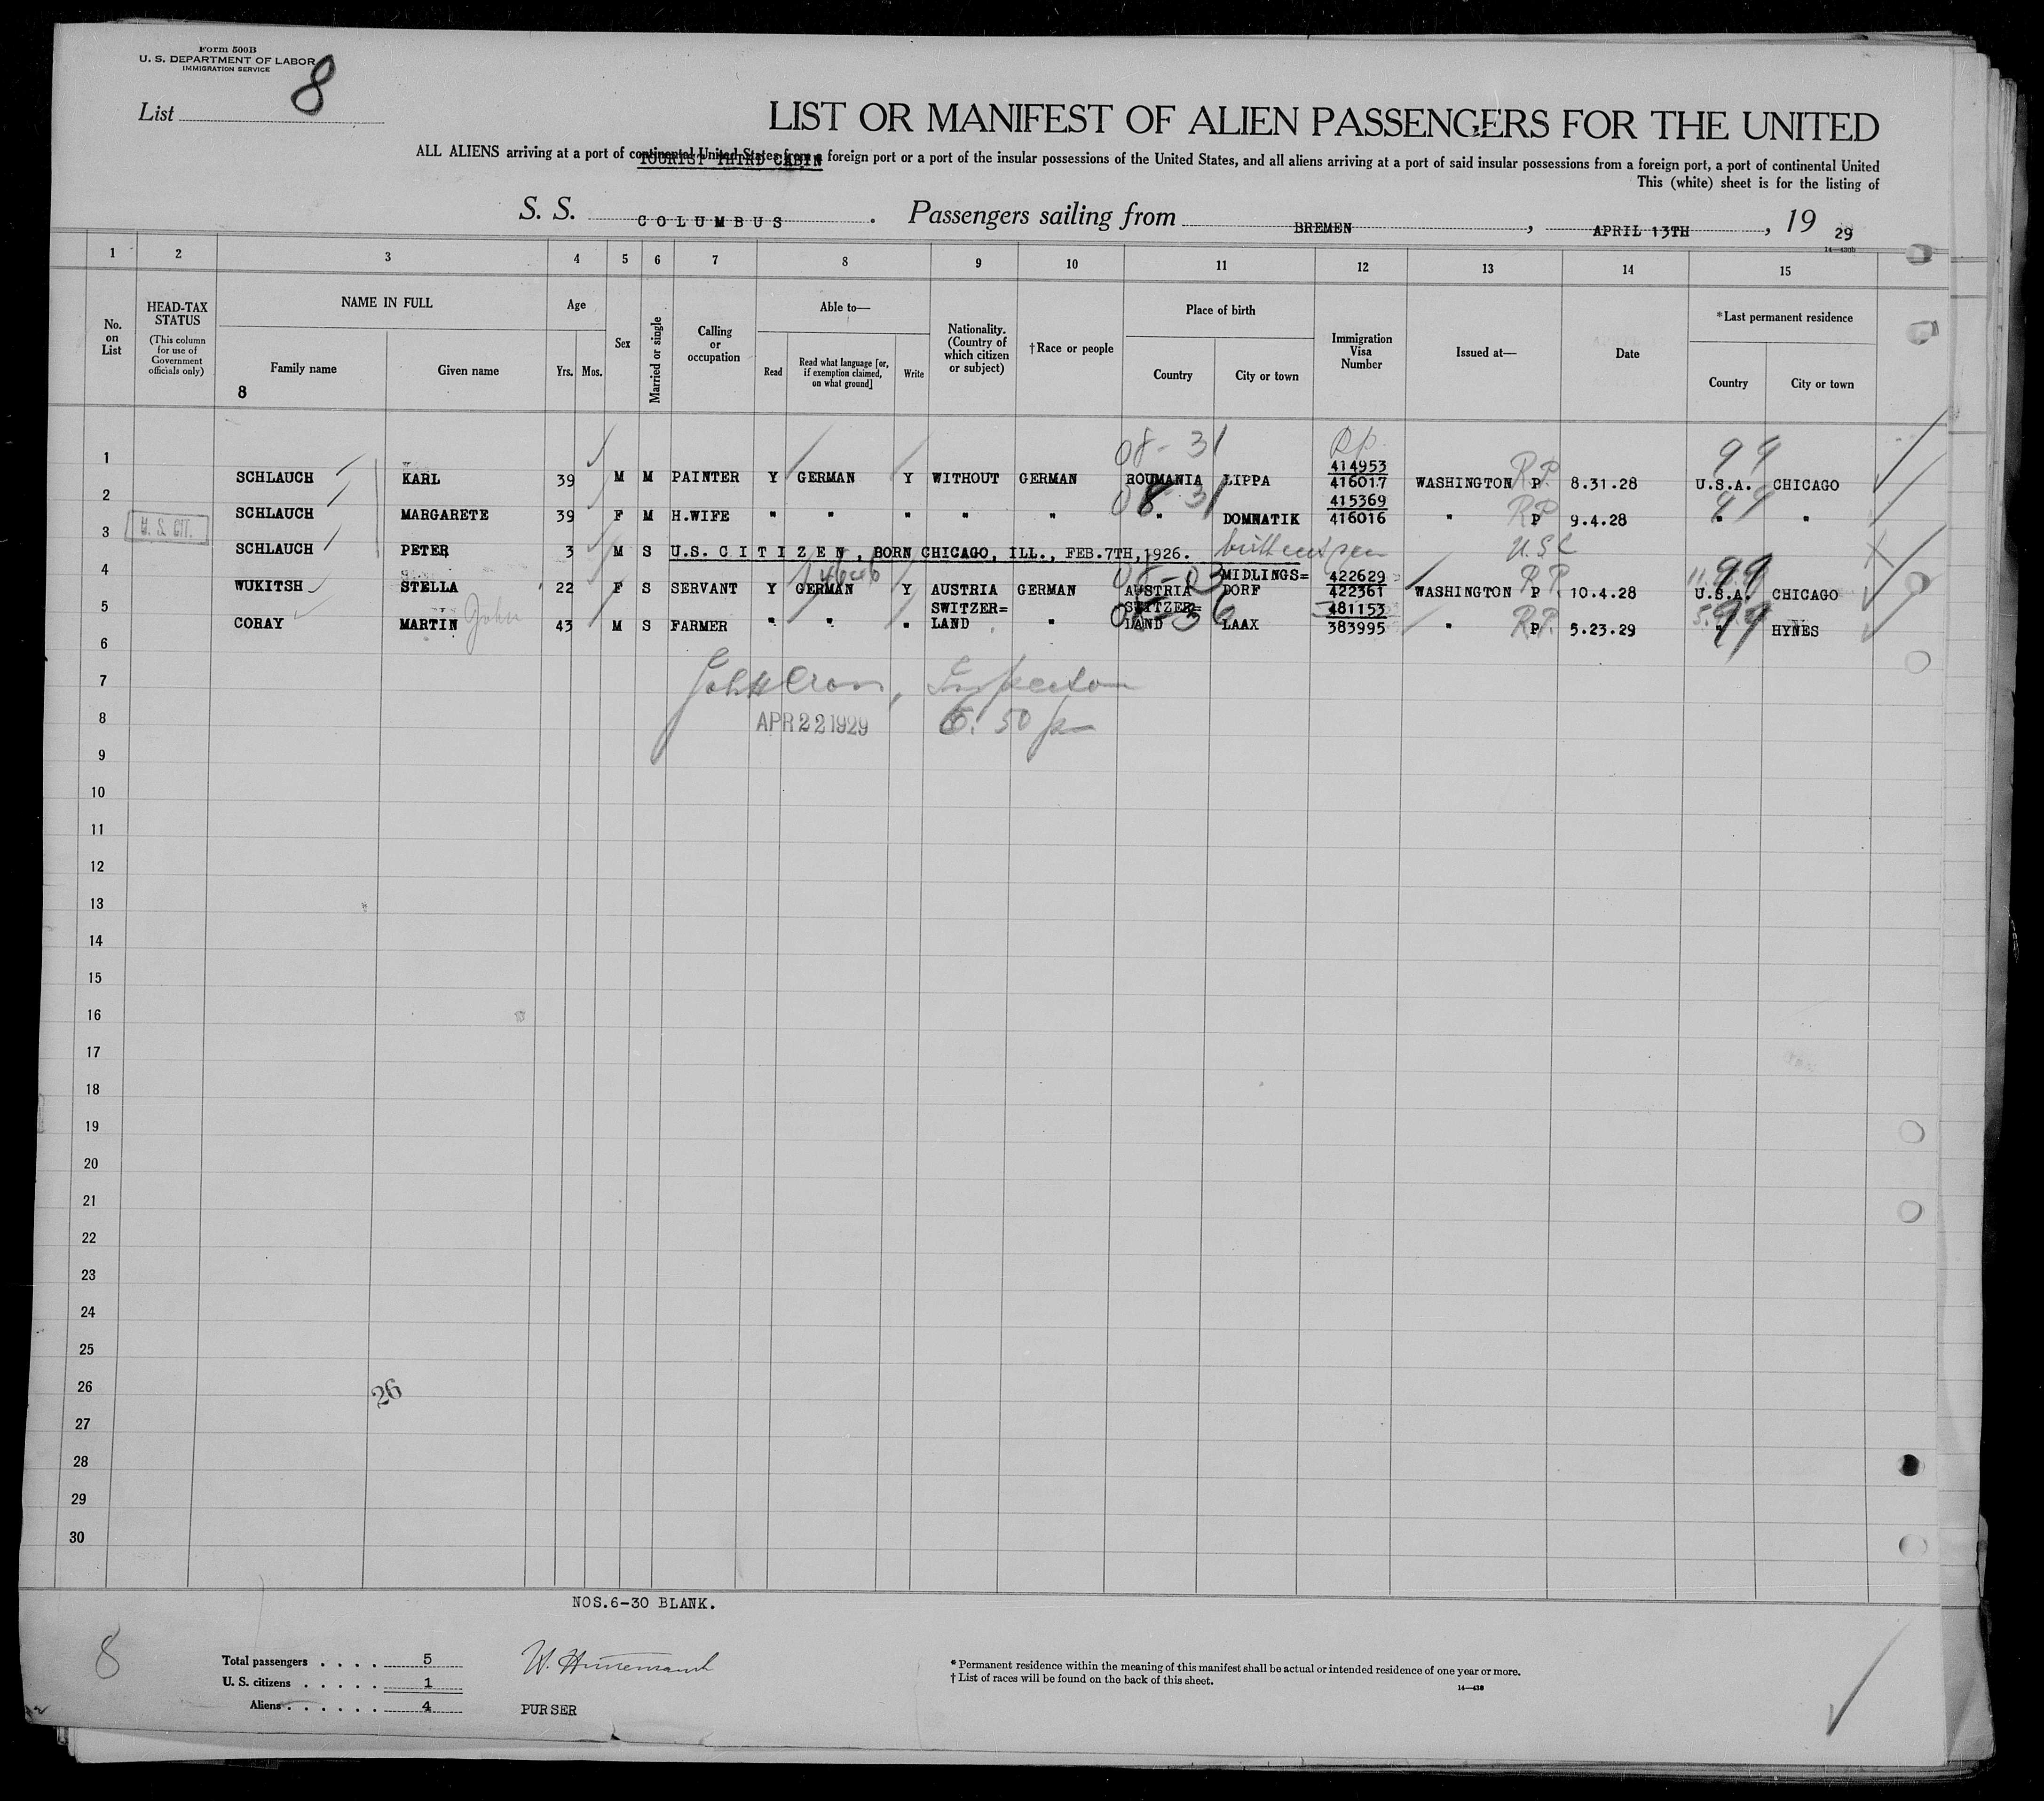 Form 500B
U. S. DEPARTMENT OF LABOR
IMMIGRATION SERVICE
List 8
LIST OR MANIFEST OF ALIEN PASSENGERS FOR THE UNITED
ALL ALIENS arriving at a port of continental United States from a foreign port or a port of the insular possessions of the United States, and all aliens arriving at a port of said insular possessions from a foreign port, a port of continental United
TOURIST THIRD CABIN
This (white) sheet is for the listing of
S. S. COLUMBUS . Passengers sailing from BREMEN , APRIL 13TH , 19 29
14—430b
1 2 3 4 5 6 7 8 9 10 11 12 13 14 15
No. on List
HEAD-TAX STATUS
(This column for use of Government officials only)
NAME IN FULL
Family name
Given name
8
Age
Yrs. Mos.
Sex
Married or single
Calling or occupation
Able to—
Read
Read what language [or, if exemption claimed, on what ground]
Write
Nationality. (Country of which citizen or subject)
†Race or people
Place of birth
Country
City or town
Immigration Visa Number
Issued at—
Date
*Last permanent residence
Country
City or town
08-31 99
414953
1 SCHLAUCH KARL 39 M M PAINTER Y GERMAN Y WITHOUT GERMAN ROUMANIA LIPPA 416017 WASHINGTON P R.P. 8.31.28 U.S.A. CHICAGO
08-31 415369 99
2 SCHLAUCH MARGARETE 39 F M H.WIFE " " " " " " DOMNATIK 416016 " P RP 9.4.28 " "
3 U. S. CIT. SCHLAUCH PETER 3 M S U.S. CITIZEN, BORN CHICAGO, ILL., FEB.7TH,1926. USC
MIDLINGS= 422629 99
4 WUKITSH STELLA 22 F S SERVANT Y GERMAN Y AUSTRIA GERMAN AUSTRIA DORF 422361 WASHINGTON P RP 10.4.28 U.S.A. CHICAGO
SWITZER= SWITZER= 481153 99
5 CORAY MARTIN John 43 M S FARMER " " " LAND " LAND LAAX 383995 " P R.P. 5.23.29 " HYNES
6
7 Inspector
8 APR 22 1929 6.50 p
9
10
11
12
13
14
15
16
17
18
19
20
21
22
23
24
25
26 26
27
28
29
30
NOS.6-30 BLANK.
8
Total passengers . . . . 5
U. S. citizens . . . . . 1
Aliens . . . . . . 4
PURSER
* Permanent residence within the meaning of this manifest shall be actual or intended residence of one year or more.
† List of races will be found on the back of this sheet.
14—430